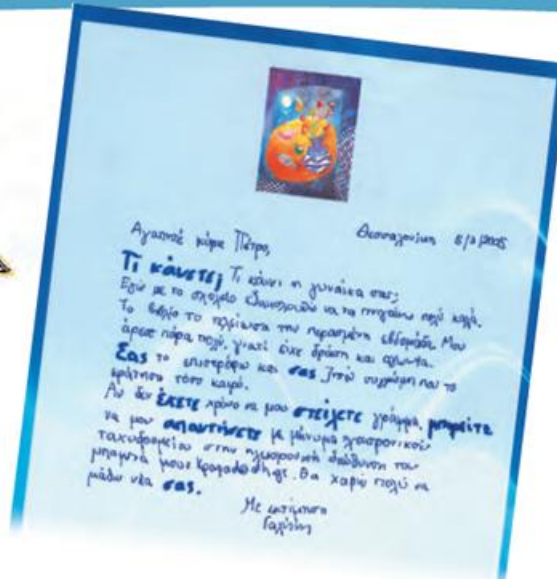 Αγαπητέ κύριε Πέτρο,
Θεσσαλονίκη 8/2/2005
Τι κάνετε; Τι κάνει η γυναίκα σας;
Εγώ με το σχολείο εξακολουθώ να τα πηγαίνω πολύ καλά.
Το βιβλίο το τελείωσα την περασμένη εβδομάδα. Μου
άρεσε πάρα πολύ, γιατί είχε δράση και αγωνία.
Σας το επιστρέφω και σας ζητώ συγγνώμη που το
κράτησα τόσο καιρό.
Αν δεν έχετε χρόνο να μου στείλετε γράμμα, μπορείτε
να μου απαντήσετε με μήνυμα ηλεκτρονικού
ταχυδρομείου στην ηλεκτρονική διεύθυνση του
μπαμπά μου: Θα χαρώ πολύ να
μάθω νέα σας.
Με εκτίμηση
Γαλήνη